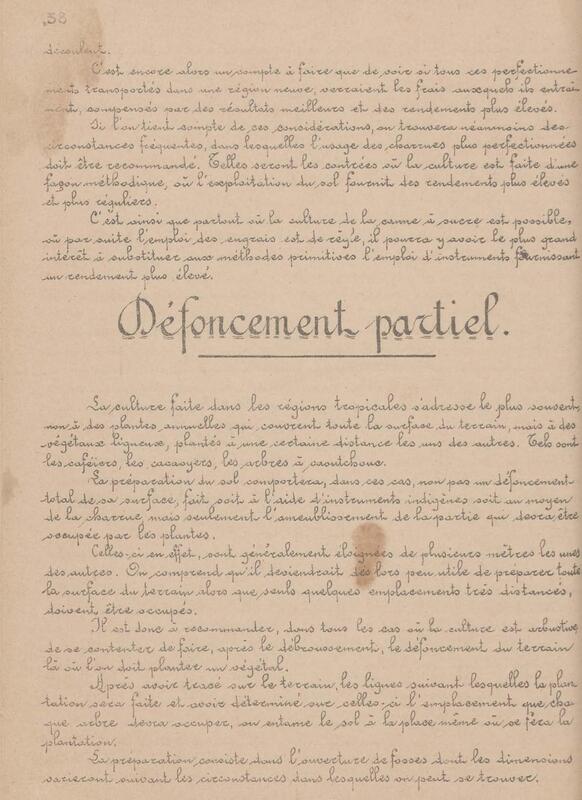 38
découlent.
C'est encore alors un compte à faire que de voir si tous ces perfectionne-
ments transportés dans une région neuve, verraient les frais auxquels ils entraî-
nent, compensés par des résultats meilleurs et des rendements plus élevés.
Si l'on tient compte de ces considérations, on trouvera néanmoins des
circonstances fréquentes, dans lesquelles l'usage des charrues plus perfectionnées
doit être recommandé. Telles seront les contrées où la culture est faite d'une
façon méthodique, où l'exploitation du sol fournit des rendements plus élevés
et plus réguliers.
C'est ainsi que partout où la culture de la canne à sucre est possible,
où par suite l'emploi des engrais est de règle, il pourra y avoir le plus grand
intérêt à substituer aux méthodes primitives l'emploi d'instruments fournissant
un rendement plus élevé.
Défoncement partiel.
La culture faite dans les régions tropicales s'adresse le plus souvent,
non à des plantes annuelles qui couvrent toute la surface du terrain, mais à des
végétaux ligneux, plantés à une certaine distance les uns des autres. Tels sont
les caféiers, les cacaoyers, les arbres à caoutchouc.
La préparation du sol comportera, dans ces cas, non pas un défoncement
total de sa surface, fait soit à l'aide d'instruments indigènes soit au moyen
de la charrue, mais seulement l'ameublissement de la partie qui devra être
occupée par les plantes.
Celles-ci en effet, sont généralement éloignées de plusieurs mètres les unes
des autres. On comprend qu'il deviendrait dès lors peu utile de préparer toute
la surface du terrain alors que seuls quelques emplacements très distances,
doivent être occupés.
Il est donc à recommander, dans tous les cas où la culture est arbustive,
de se contenter de faire, après le débroussement, le défoncement du terrain
là où l'on doit planter un végétal.
Après avoir tracé sur le terrain, les lignes suivant lesquelles la plan-
tation sera faite et avoir déterminé sur celles-ci l'emplacement que cha-
que arbre devra occuper, on entame le sol à la place même où se fera la
plantation.
La préparation consiste dans l'ouverture de fosses dont les dimensions
varieront suivant les circonstances dans lesquelles on peut se trouver.